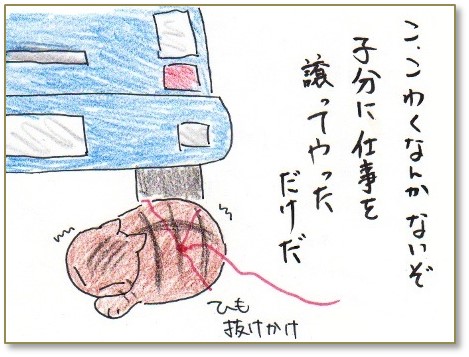 こ、こわくなんかないぞ
子分に仕事を
譲ってやった
だけだ
ひも
抜けかけ